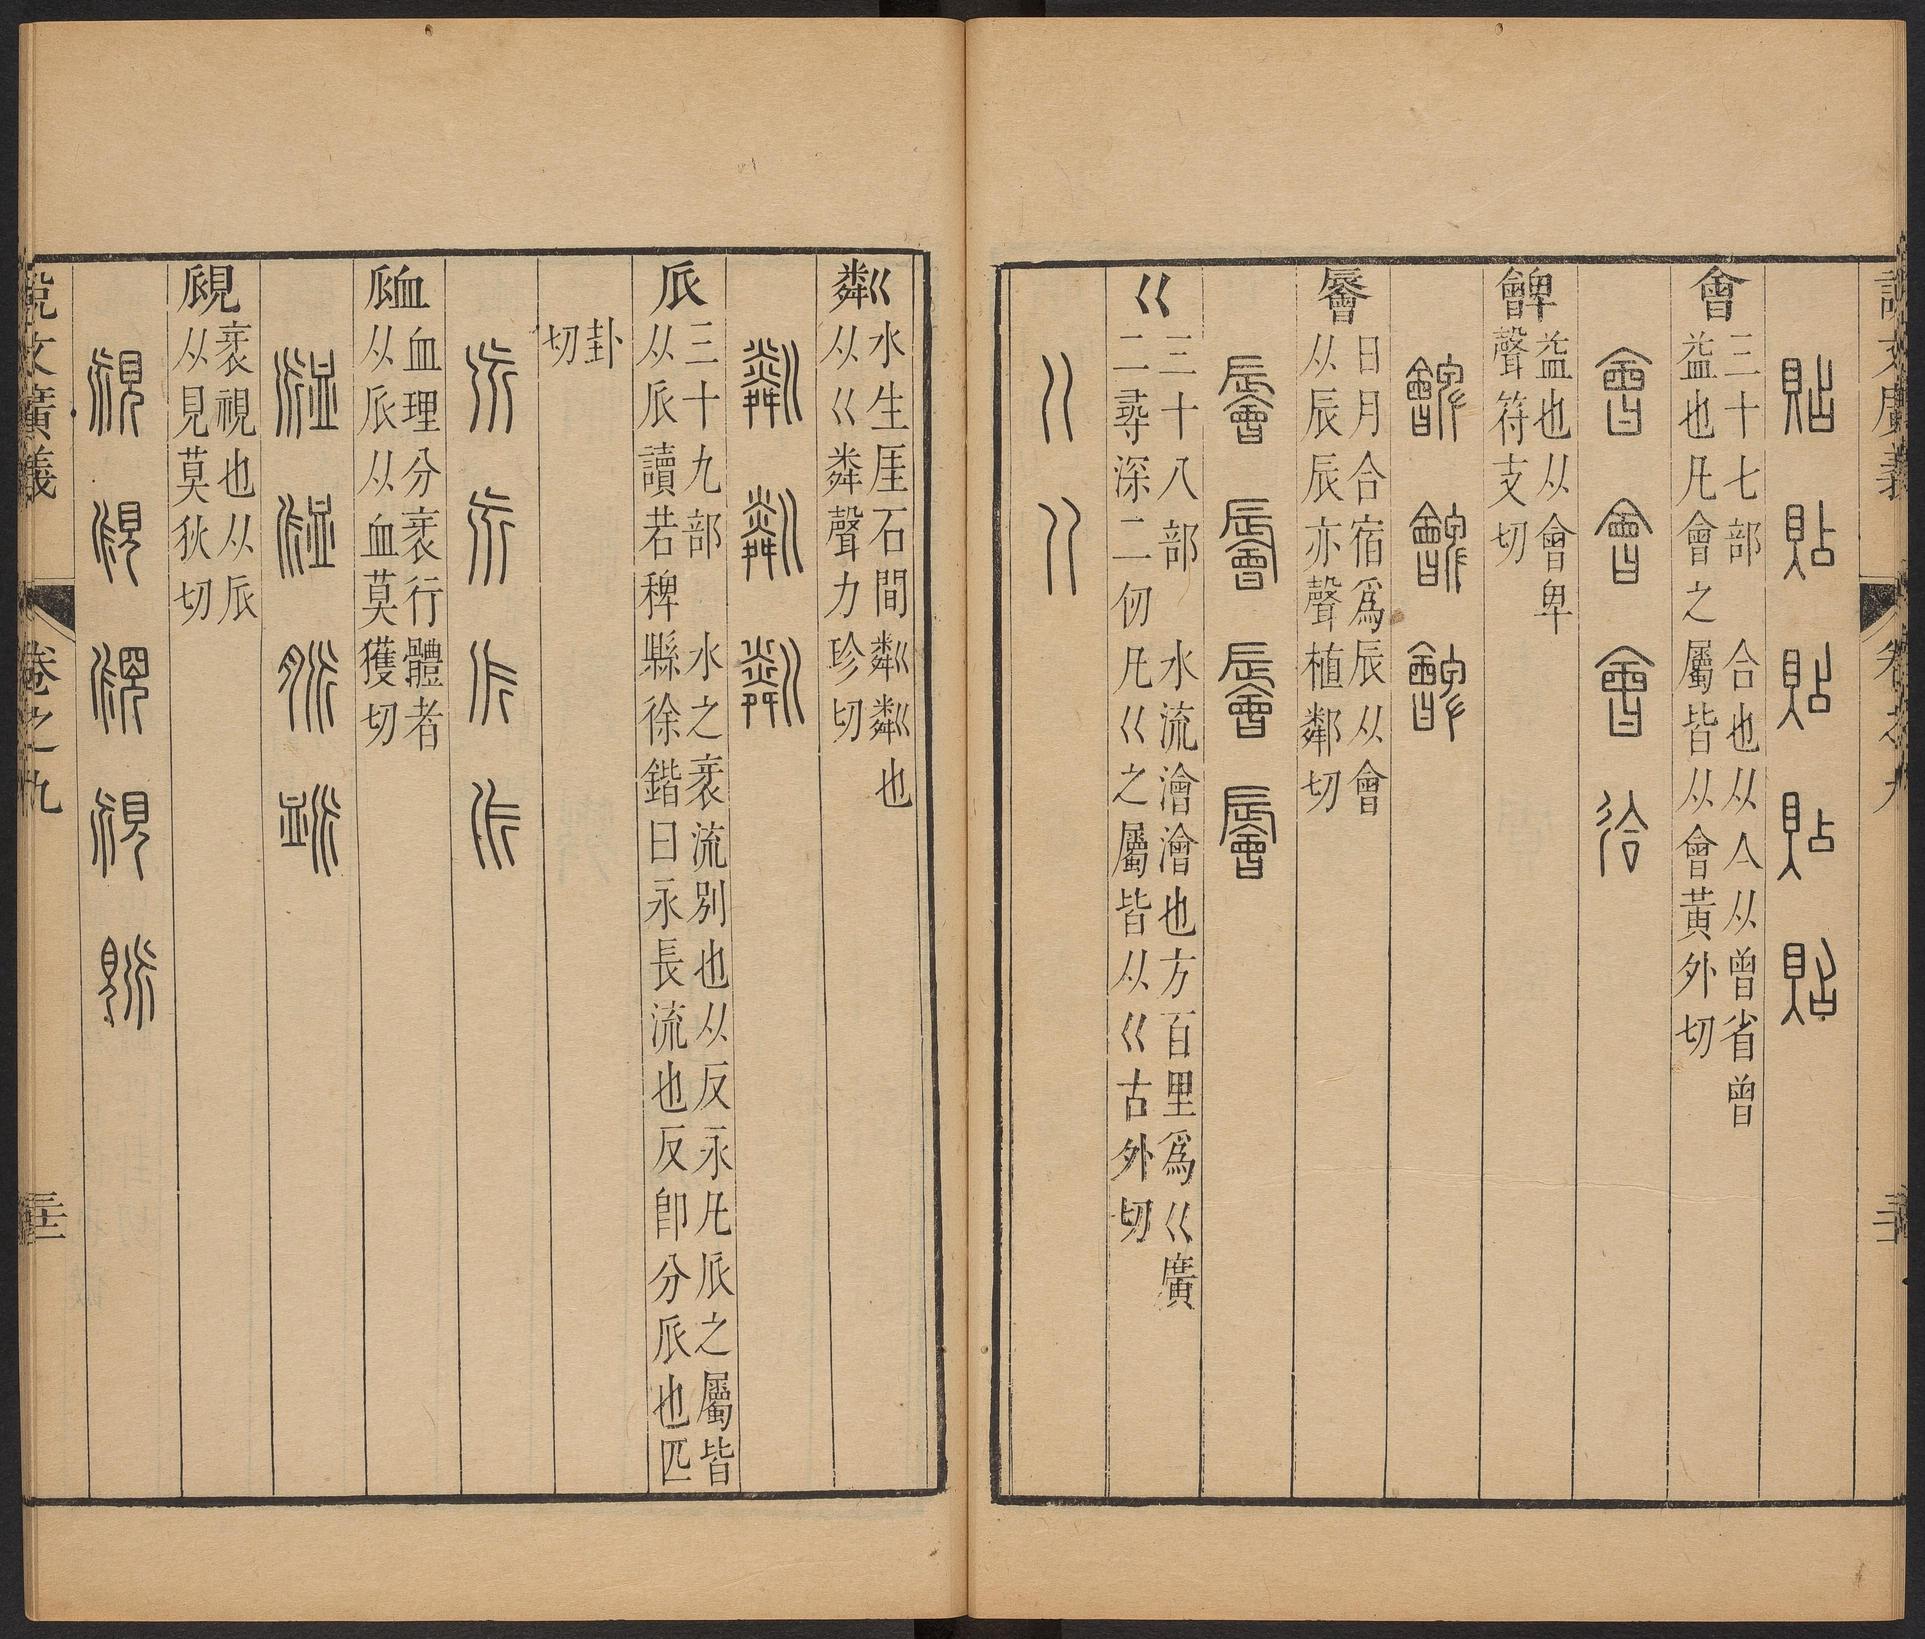 貼貼貼貼貼
會 三十七部 合也从亼从曾省曾
益也凡會之屬皆从會黃外切
會會會㣛
䚜 益也从會卑
聲符支切
䚜䚜䚜
㬟 日月合宿爲辰从會
从辰辰亦聲植鄰切
㬟㬟㬟㬟
巜 三十八部 水流澮澮也方百里爲巜廣
二尋深二仞凡巜之屬皆从巜古外切
巜巜
粼 水生厓石間粼粼也
从巜粦聲力珍切
粼粼粼
𠂢 三十九部 水之衺流別也从反永凡𠂢之屬皆
从𠂢讀若稗縣徐鍇曰永長流也反卽分𠂢也匹
卦
切
𠂢𠂢𠂢𠂢
衇 血理分衺行體者
从𠂢从血莫獲切
衇衇脈
覛 衺視也从𠂢
从見莫狄切
覛覛覛覛覛
說文廣義 卷之九